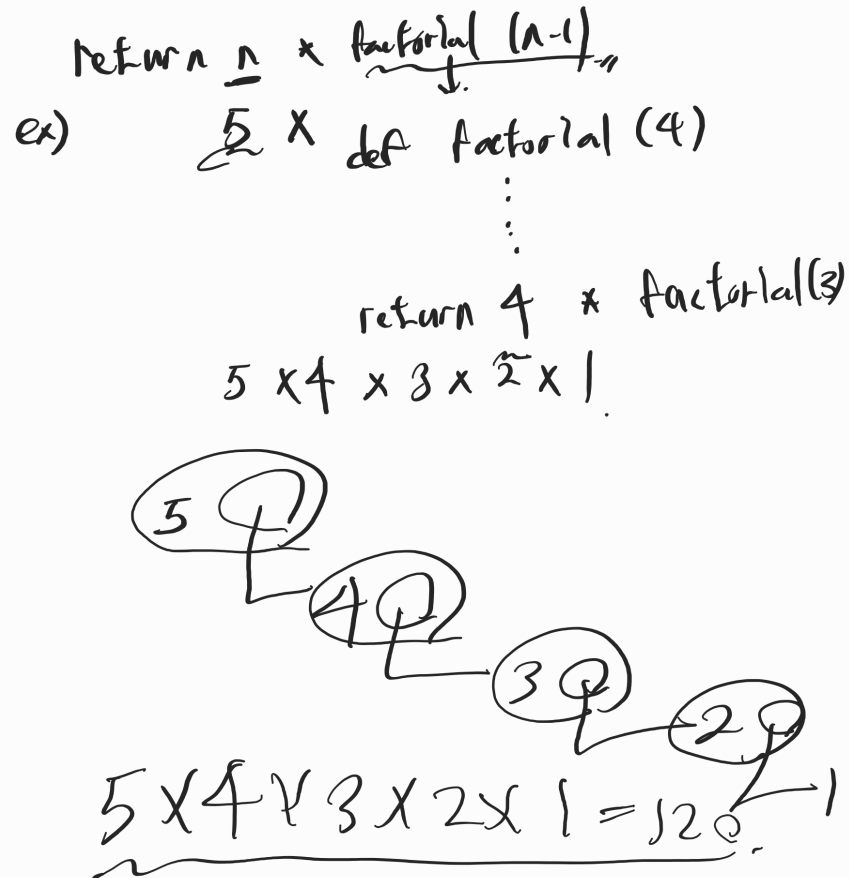 return n * factorial (n-1)
ex) 5 × def factorial (4)
return 4 * factorial(3)
5 × 4 × 3 × 2 × 1
5
4
3
2
1
5 × 4 × 3 × 2 × 1 = 120.